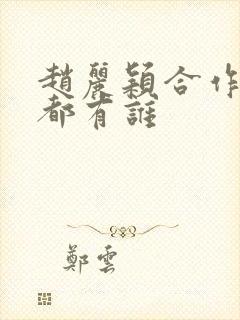 趙麗穎合作
都有誰
鄭雲